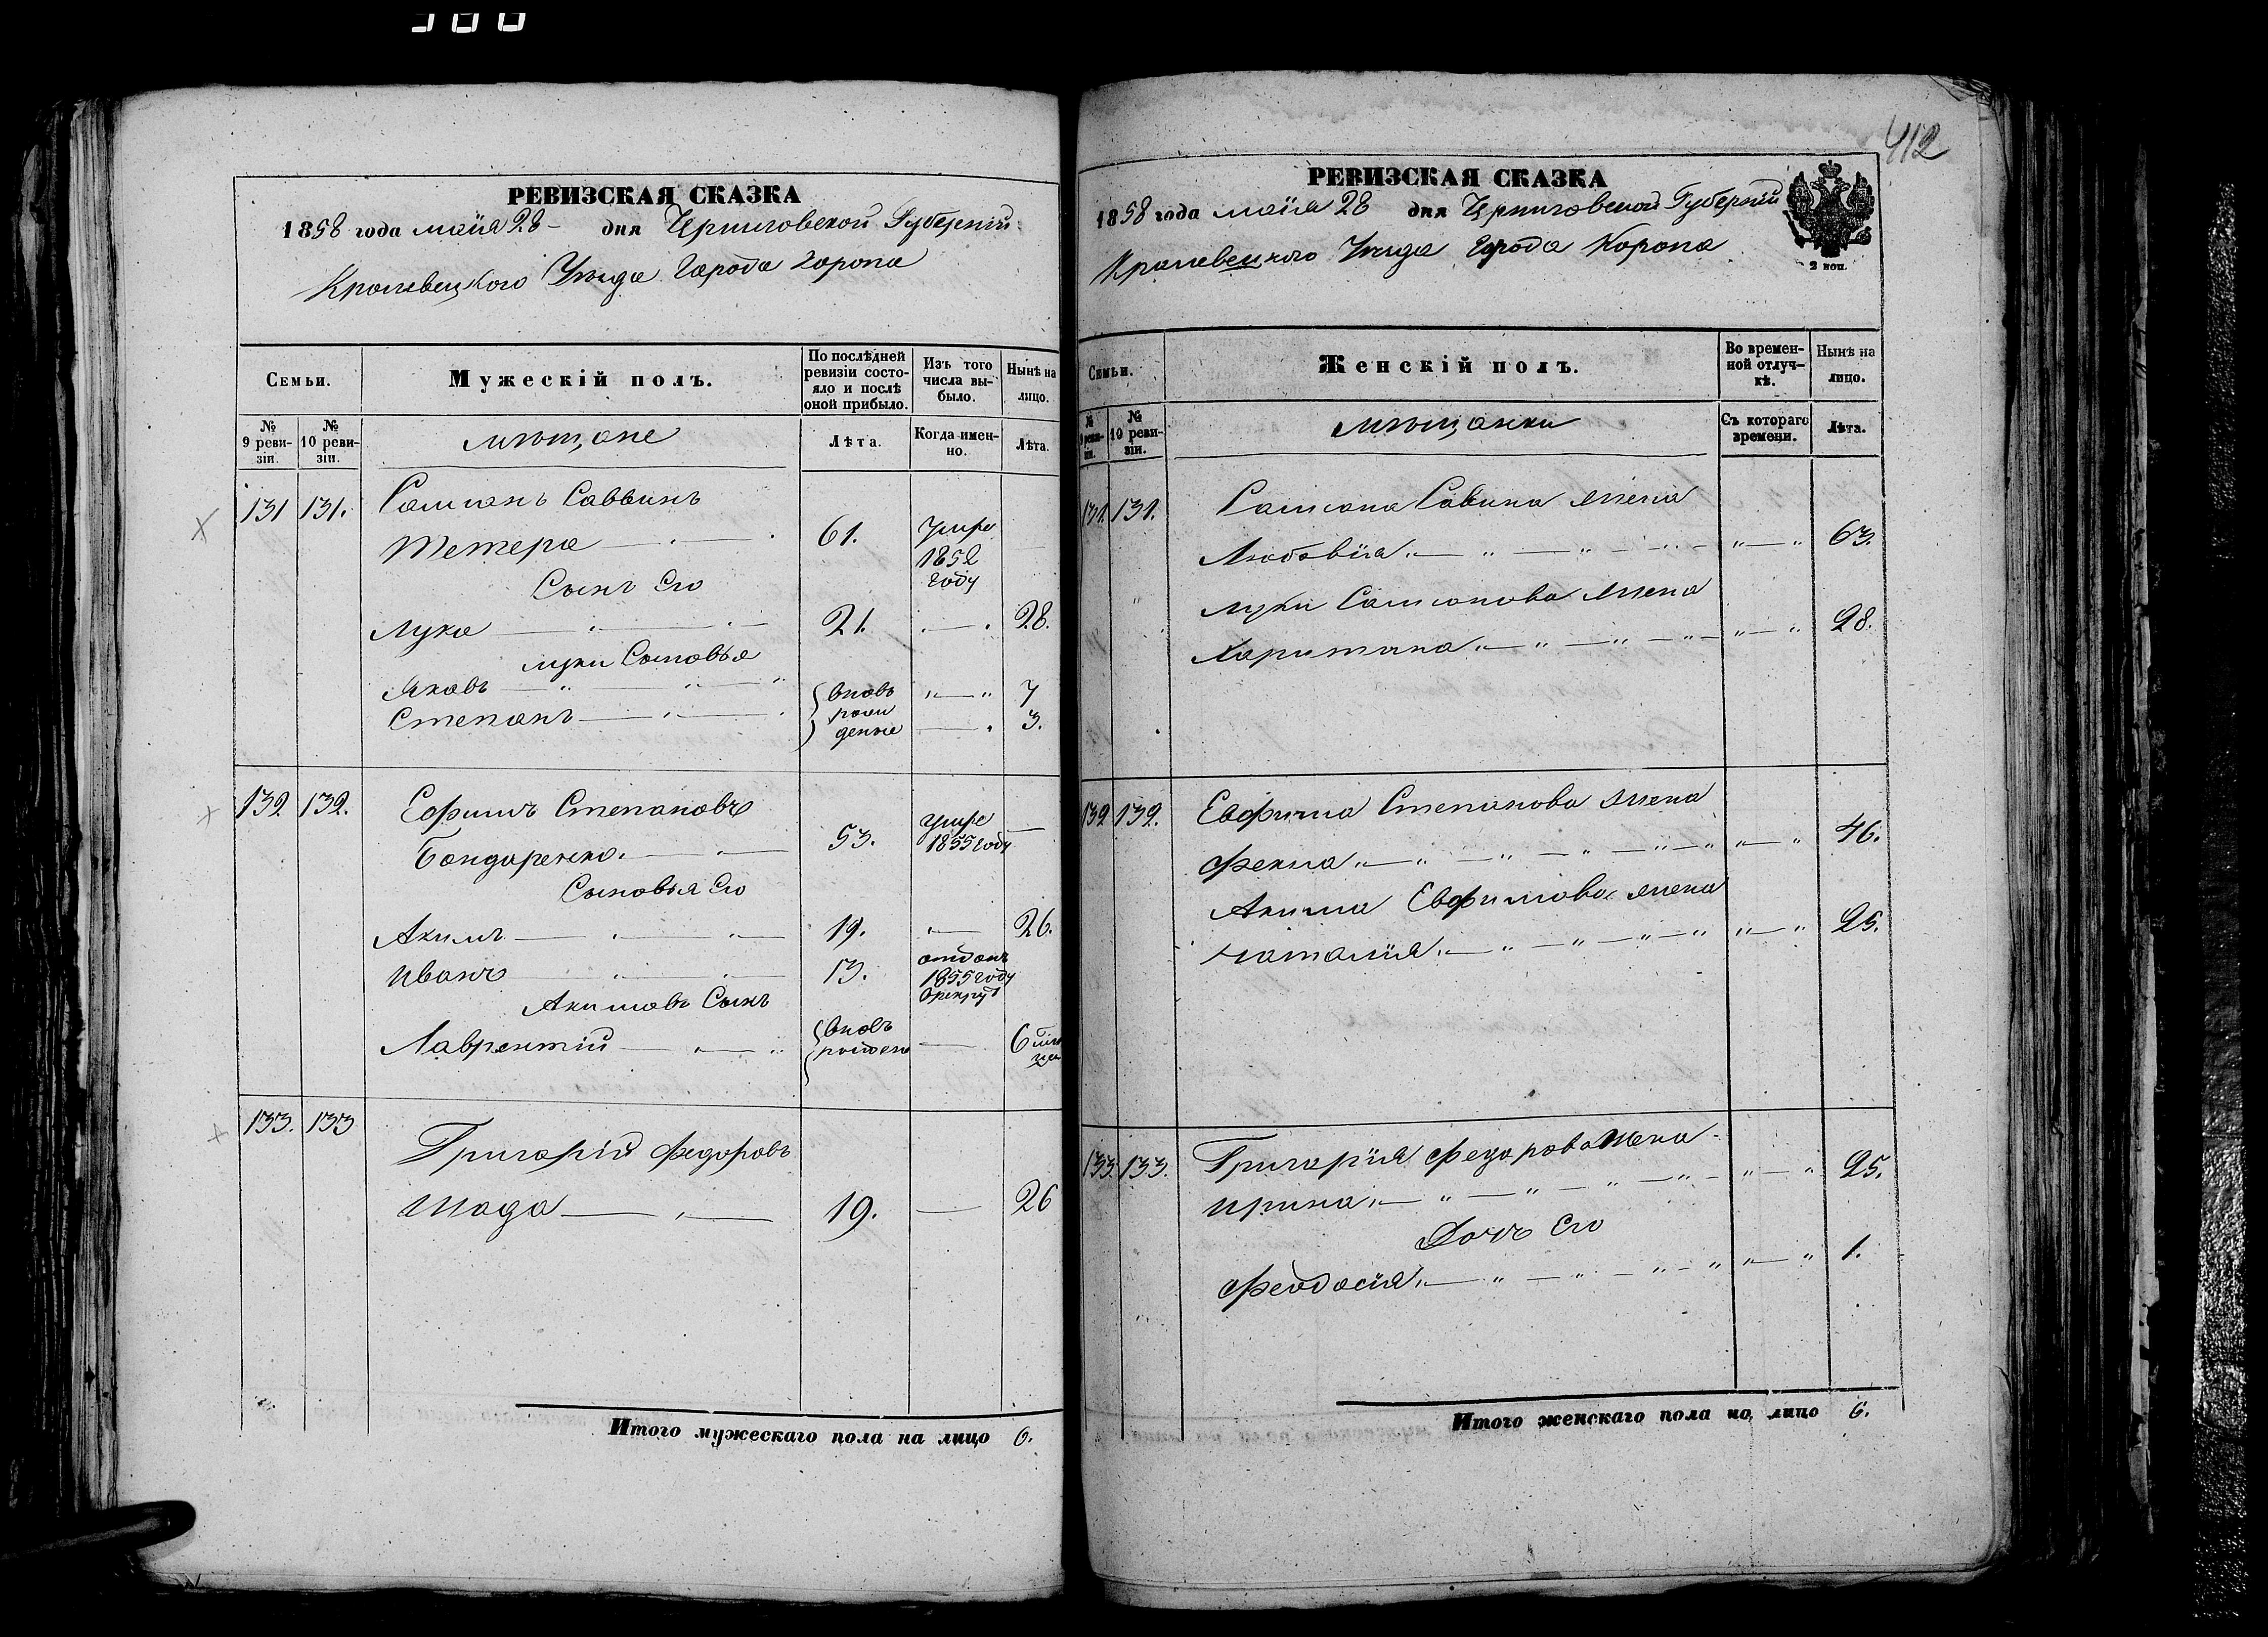 412
РЕВИЗСКАЯ СКАЗКА
1858 года маія 28 дня Черниговской Губерніи
Кролевецкого Уезда Города Коропа
Семьи.
Мужескій полъ.
По послѣдней ревизіи состояло и послѣ оной прибыло.
Изъ того числа выбыло.
Нынѣ на лицо.
№ 9 ревизіи.
№ 10 ревизіи.
мѣщане
Лѣта.
Когда именно.
Лѣта.
131 131. Самсонъ Саввинъ
Тетера 61. умре 1852 году
Сынъ Его
Лука 21. 28.
Луки Сыновья
Яковъ вновь рожденые 7
Степанъ 3.
132 132. Ефимъ Степановъ
Бондаренко. 53. умре 1855 году
Сыновья Его
Акимъ 19. 26.
Иванъ 13. отданъ 1855 году в рекрут
Акимовъ Сынъ
Лаврентій вновь рожден 6
133. 133 Григорій Федоровъ
Шада 19. 26
Итого мужескаго пола на лицо 6.
РЕВИЗСКАЯ СКАЗКА
1858 года маія 28 дня Черниговской Губерніи
Кролевецкого Уезда Города Коропа
2 коп.
Семьи.
Женскій полъ.
Во временной отлучкѣ.
Нынѣ на лицо.
№ 9 ревизіи.
№ 10 ревизіи.
мѣщанки
Съ котораго времени.
Лѣта.
131. 131. Самсона Савина жена
Любовія 63.
Луки Самсонова жена
Харитина 28.
132 132. Евфима Степанова жена
Фекла 46.
Акима Евфимова жена
Наталія 25.
133. 133. Григорія Федорова жена
Ирина 25.
Дочь Его
Феодосія 1.
Итого женскаго пола на лицо 6.